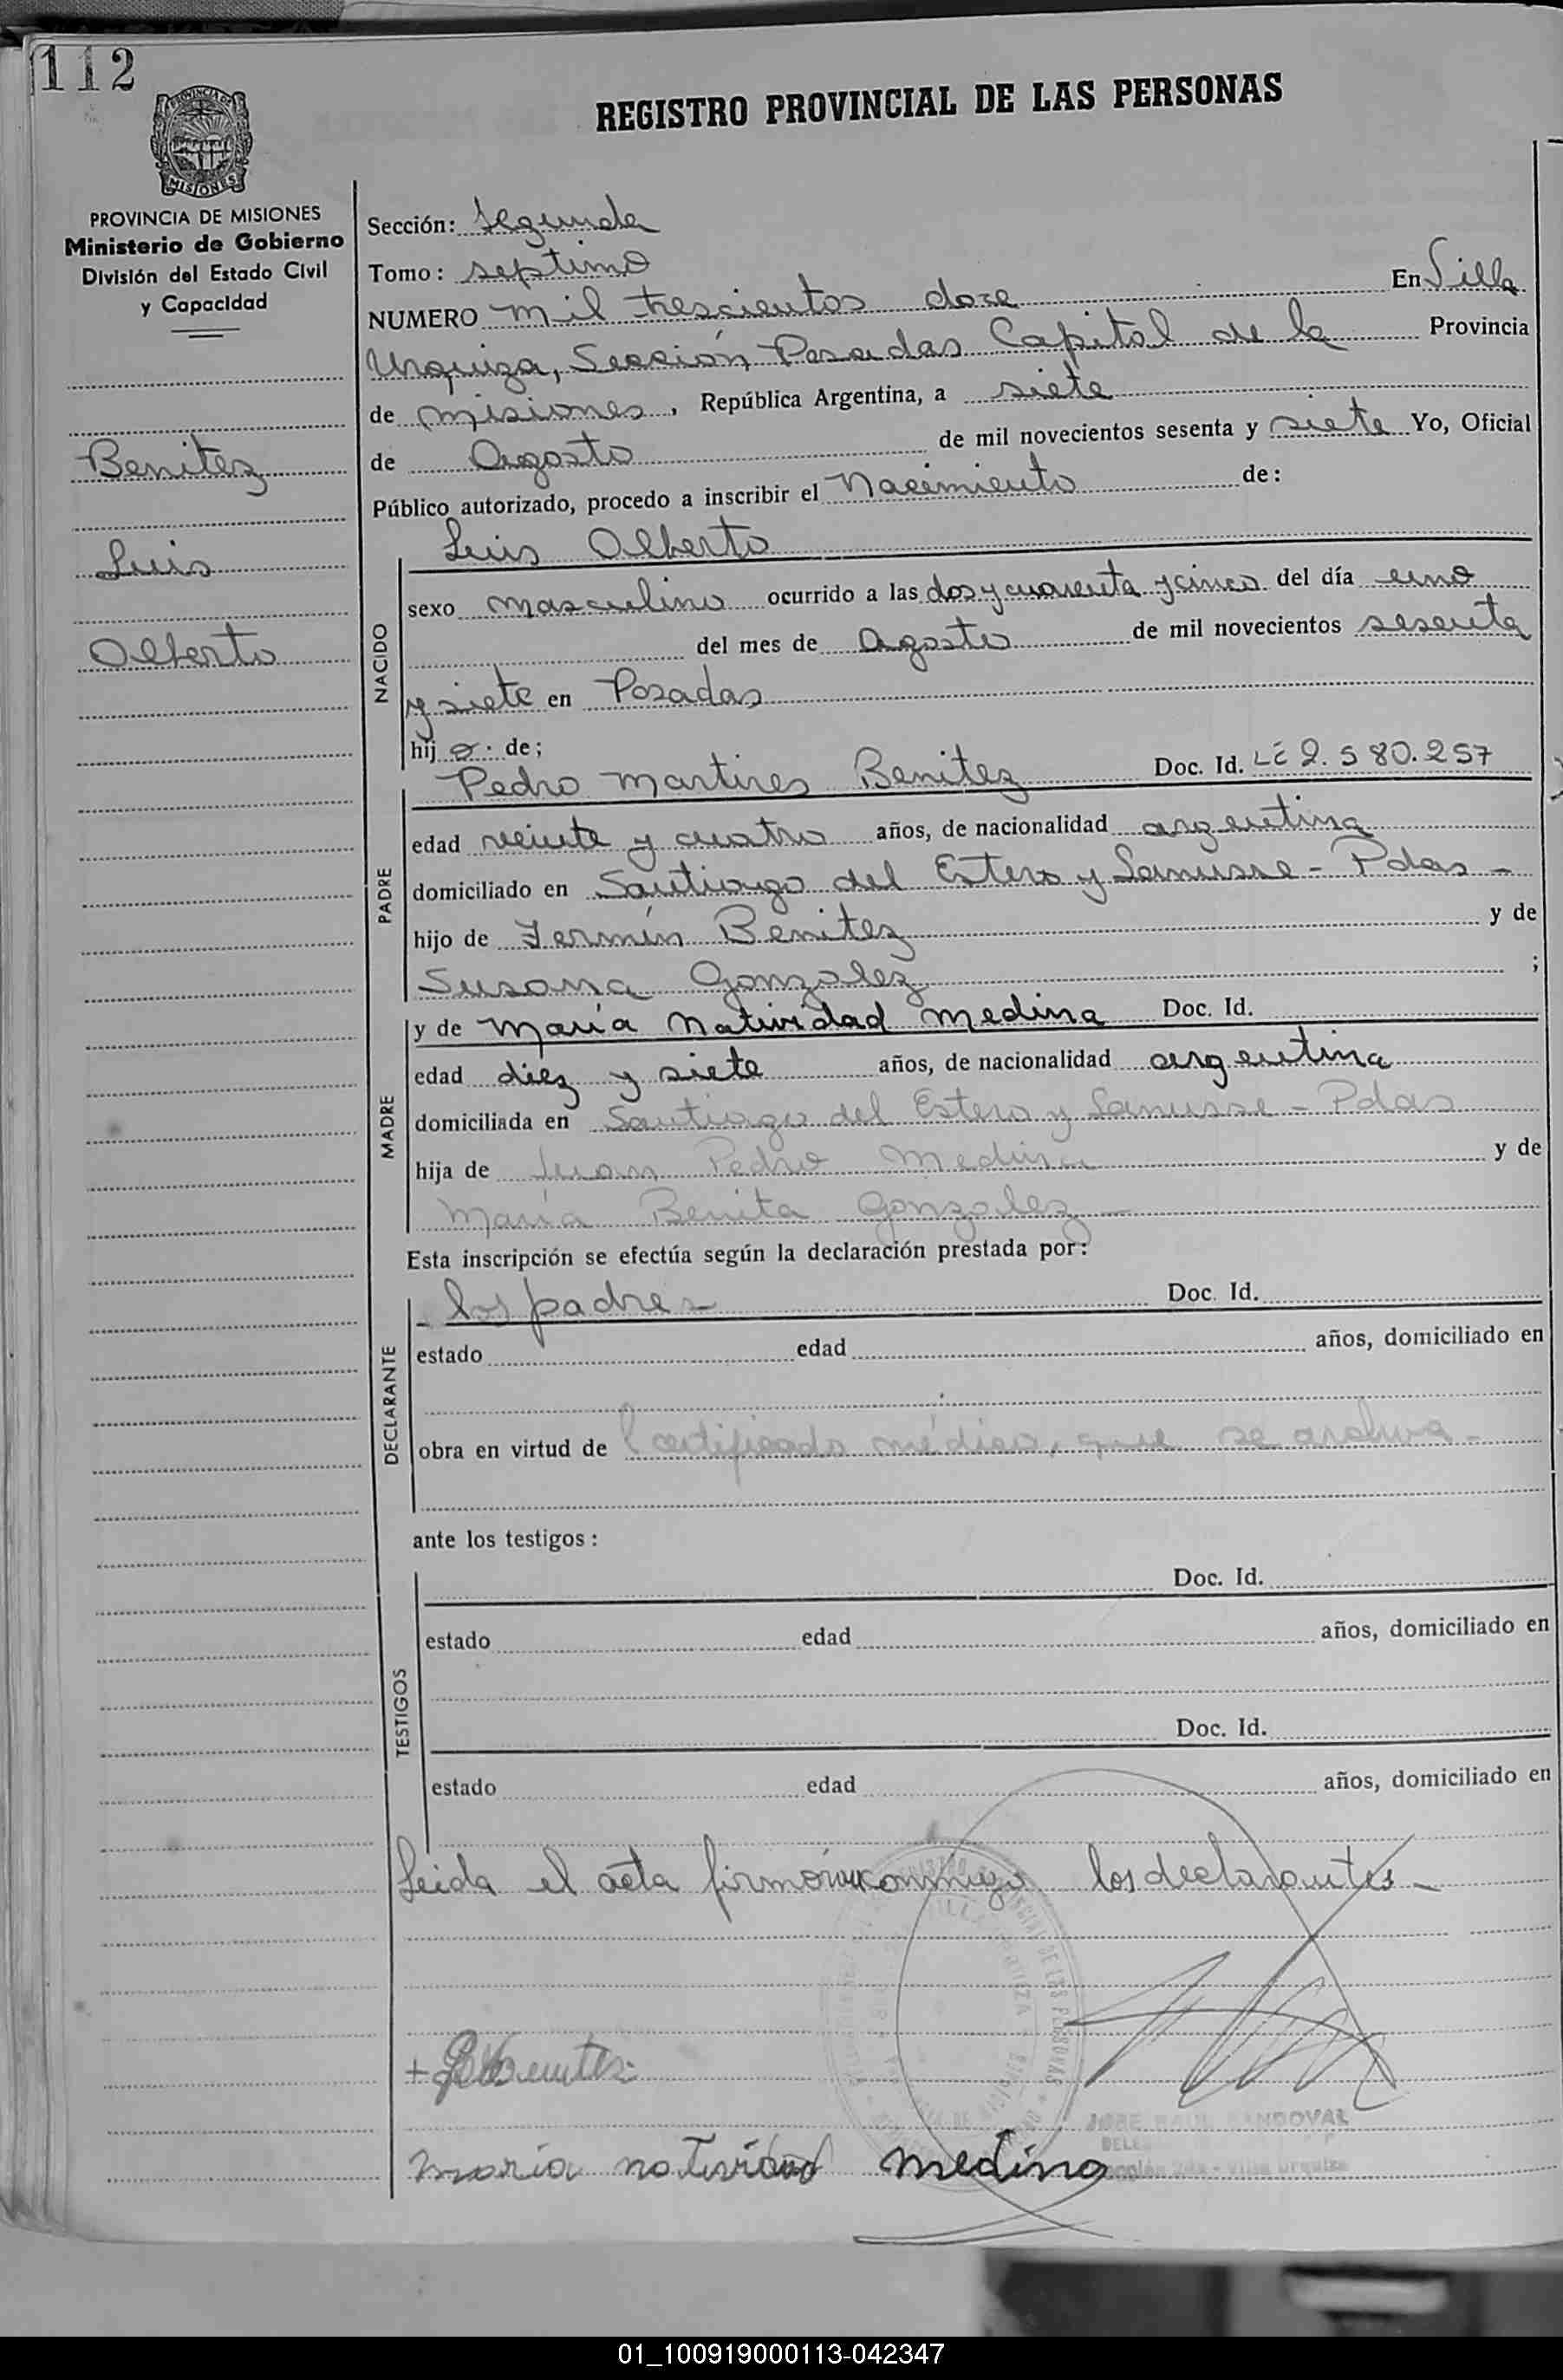 112
REGISTRO PROVINCIAL DE LAS PERSONAS
PROVINCIA DE MISIONES
MISIONES
PROVINCIA DE MISIONES
Ministerio de Gobierno
División del Estado Civil
y Capacidad
Benitez
Luis
Alberto
Sección: Segunda
Tomo: septimo
NUMERO mil trescientos doce En Villa
Urquiza, Sección Posadas Capital de la Provincia
de misiones, República Argentina, a siete
de Agosto de mil novecientos sesenta y siete Yo, Oficial
Público autorizado, procedo a inscribir el Nacimiento de:
NACIDO
Luis Alberto
sexo masculino ocurrido a las dos y cuarenta y cinco del día uno
del mes de Agosto de mil novecientos sesenta
y siete en Posadas
hijo de;
PADRE
Pedro Martires Benitez Doc. Id. LE 2.580.257
edad veinte y cuatro años, de nacionalidad argentina
domiciliado en Santiago del Estero y Lanusse - Pdas -
hijo de Fermín Benitez y de
Susana Gonzalez ;
MADRE
y de María Natividad Medina Doc. Id.
edad diez y siete años, de nacionalidad argentina
domiciliada en Santiago del Estero y Lanusse - Pdas
hija de Juan Pedro Medina y de
María Benita Gonzalez -
Esta inscripción se efectúa según la declaración prestada por:
DECLARANTE
los padres Doc. Id.
estado edad años, domiciliado en
obra en virtud de certificado médico, que se archiva -
ante los testigos:
TESTIGOS
Doc. Id.
estado edad años, domiciliado en
Doc. Id.
estado edad años, domiciliado en
Leida el acta firman conmigo los declarantes -
JOSE RAUL SANDOVAL
Villa Urquiza
maria natividad medina
01_100919000113-042347